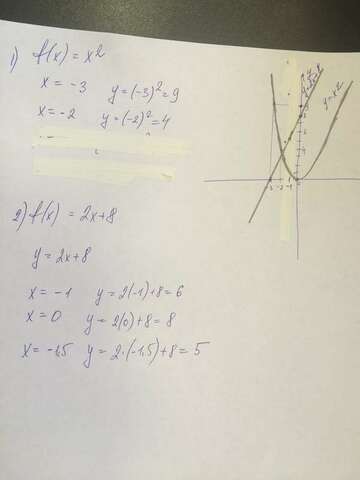 1) f(x) = x²
x = -3 y = (-3)² = 9
x = -2 y = (-2)² = 4
2) f(x) = 2x+8
y = 2x+8
x = -1 y = 2(-1)+8 = 6
x = 0 y = 2(0)+8 = 8
x = -1,5 y = 2·(-1,5)+8 = 5
y = x²
-3 -2 -1